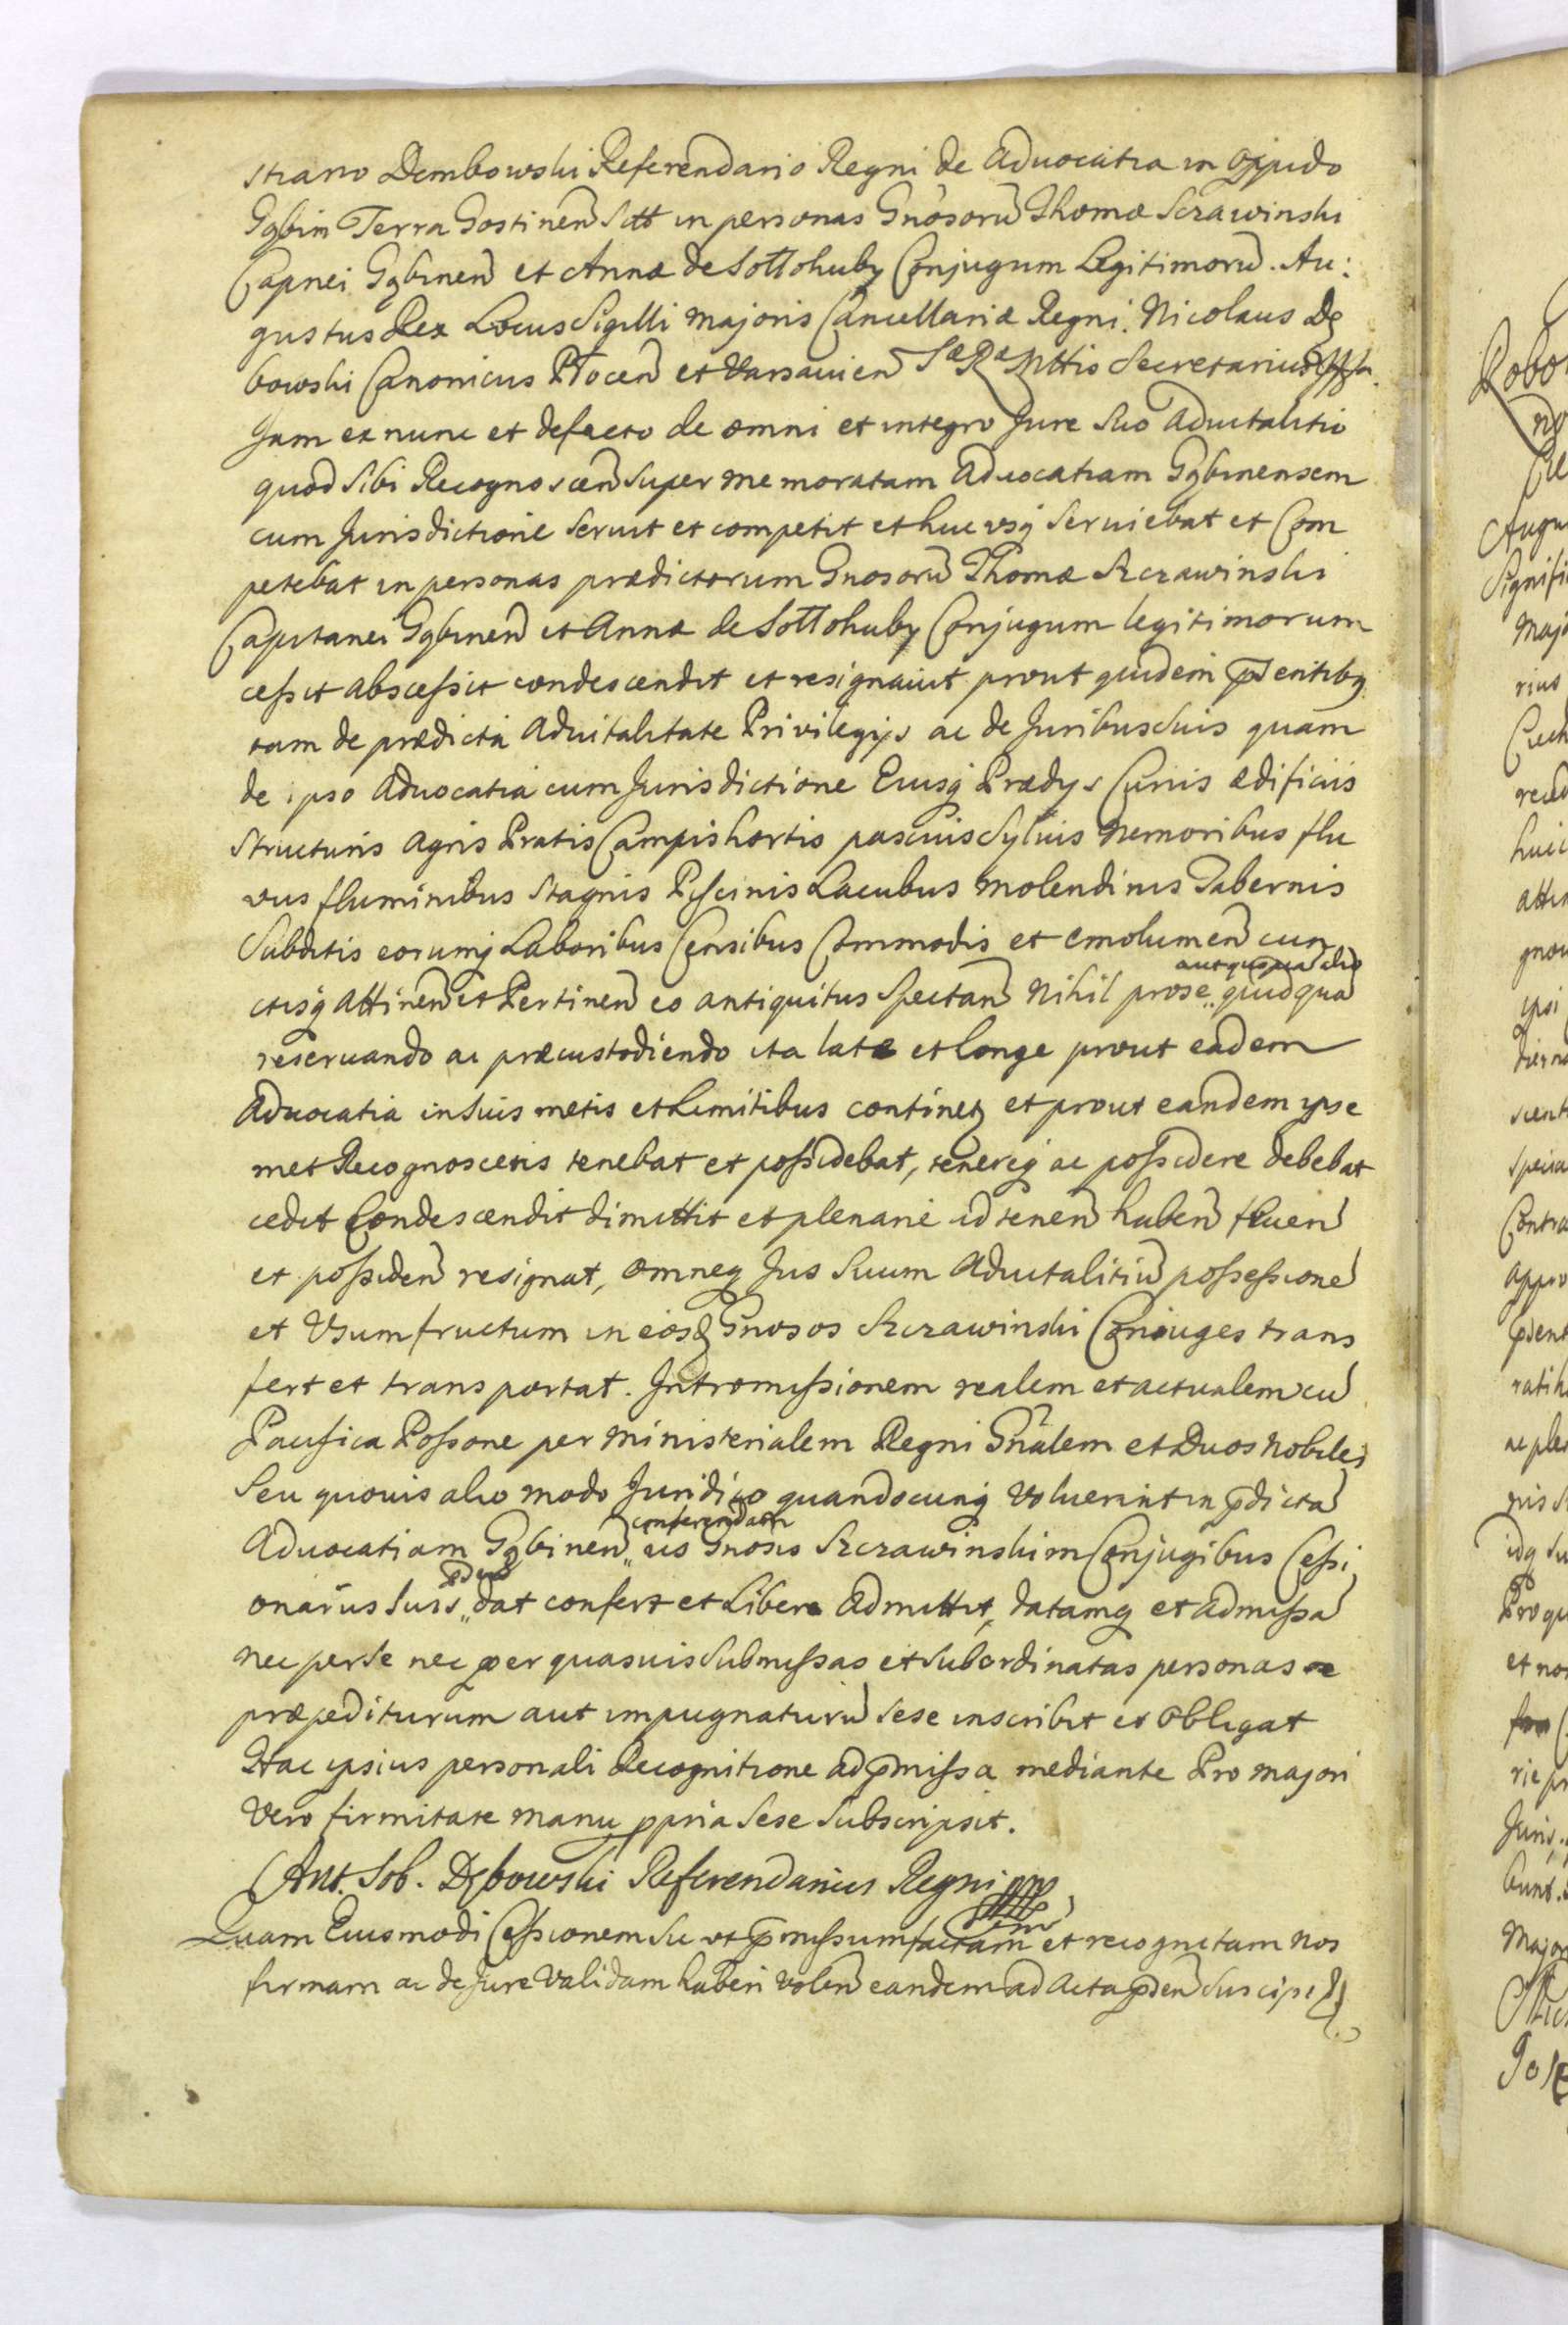 strano Dembowski Referendario Regni de Advocatia in Oppido
Gąbin Terra Gostinen Sitt in personas Gnosoru Thomæ Sczawinski
Capnei Gąbinen et Annæ de Sottohuby Conjugum Legitimoru. Au:
gustus Rex Locus Sigilli majoris Cancellariæ Regni. Nicolaus Dę
bowski Canonicus Płocen et Varsavien Sæ Ræ Mttis Secretarius
Jam ex nunc et defacto de omni et integro Jure Suo Advitalitio
quod Sibi Recognoscen Super memoratam Advocatiam Gąbinensem
cum Jurisdictione Servit et competit et huc usq Serviebat et Com
petebat in personas prædictorum Gnosoru Thomæ Szczawinski
Capitanei Gąbinen et Annæ de Sottohuby Conjugum legitimorum
cessit abscessit condescendit et resignavit prout quidem pñsentibq
tam de prædicta Advitalitate Privilegijs ac de Juribus Suis quam
de ipso Advocatia cum Jurisdictione Eiusq Prædys Curiis ædificiis
Structuris Agris Pratis Campis hortis pascuis Sylvis Nemoribus flu
vus fluminibus Stagnis Piscinis Lacubus Molendinis Tabernis
Subditis eorumq Laboribus Censibus Commodis et emolumen cun
ctisq Attinen et Pertinen eo antiquitus Spectan Nihil pro se quidqua
reservando ac præcustodiendo ita late et longe prout eadem
Advocatia in Suis metis et Limitibus continet et prout eandem ipse
met Recognoscens tenebat et possidebat, tenereq ac possidere debebat
cedit Condescendit dimittit et plenarie id tenen haben fruen
et possiden resignat, omneq Jus Suum Advitalitiu possessione
et Usumfructum in eosd Gnosos Szczawinski Coniuges trans
fert et transportat. Intromissionem realem et actualem cu
Pacifica Possone per Ministerialem Regni Gñalem et Duos Nobiles
Seu quovis alio modo Juridico quandocunq Voluerint in pdicta
conferendam
Advocatiam Gąbinen eis Gnosis Szczawinskim Conjugibus Cessi
onariis Suis dat confert et Libere Admittit, datamq et admissa
nec per Se nec per quasvis Submissas et Subordinatas personas se
præpediturum aut impugnaturu Sese inscribit et Obligat
Hac ipsius personali Recognitione ad pmissa mediante Pro majori
Vero firmitate manu ppria Sese Subscripsit.
Ant. Seb. Dębowski Referendarius Regni
Quam Eiusmodi Cessionem Sic ut pmissum factam et recognitam Nos
firmam ac de Jure Validam haberi volen eandem ad Acta pden Suscipi